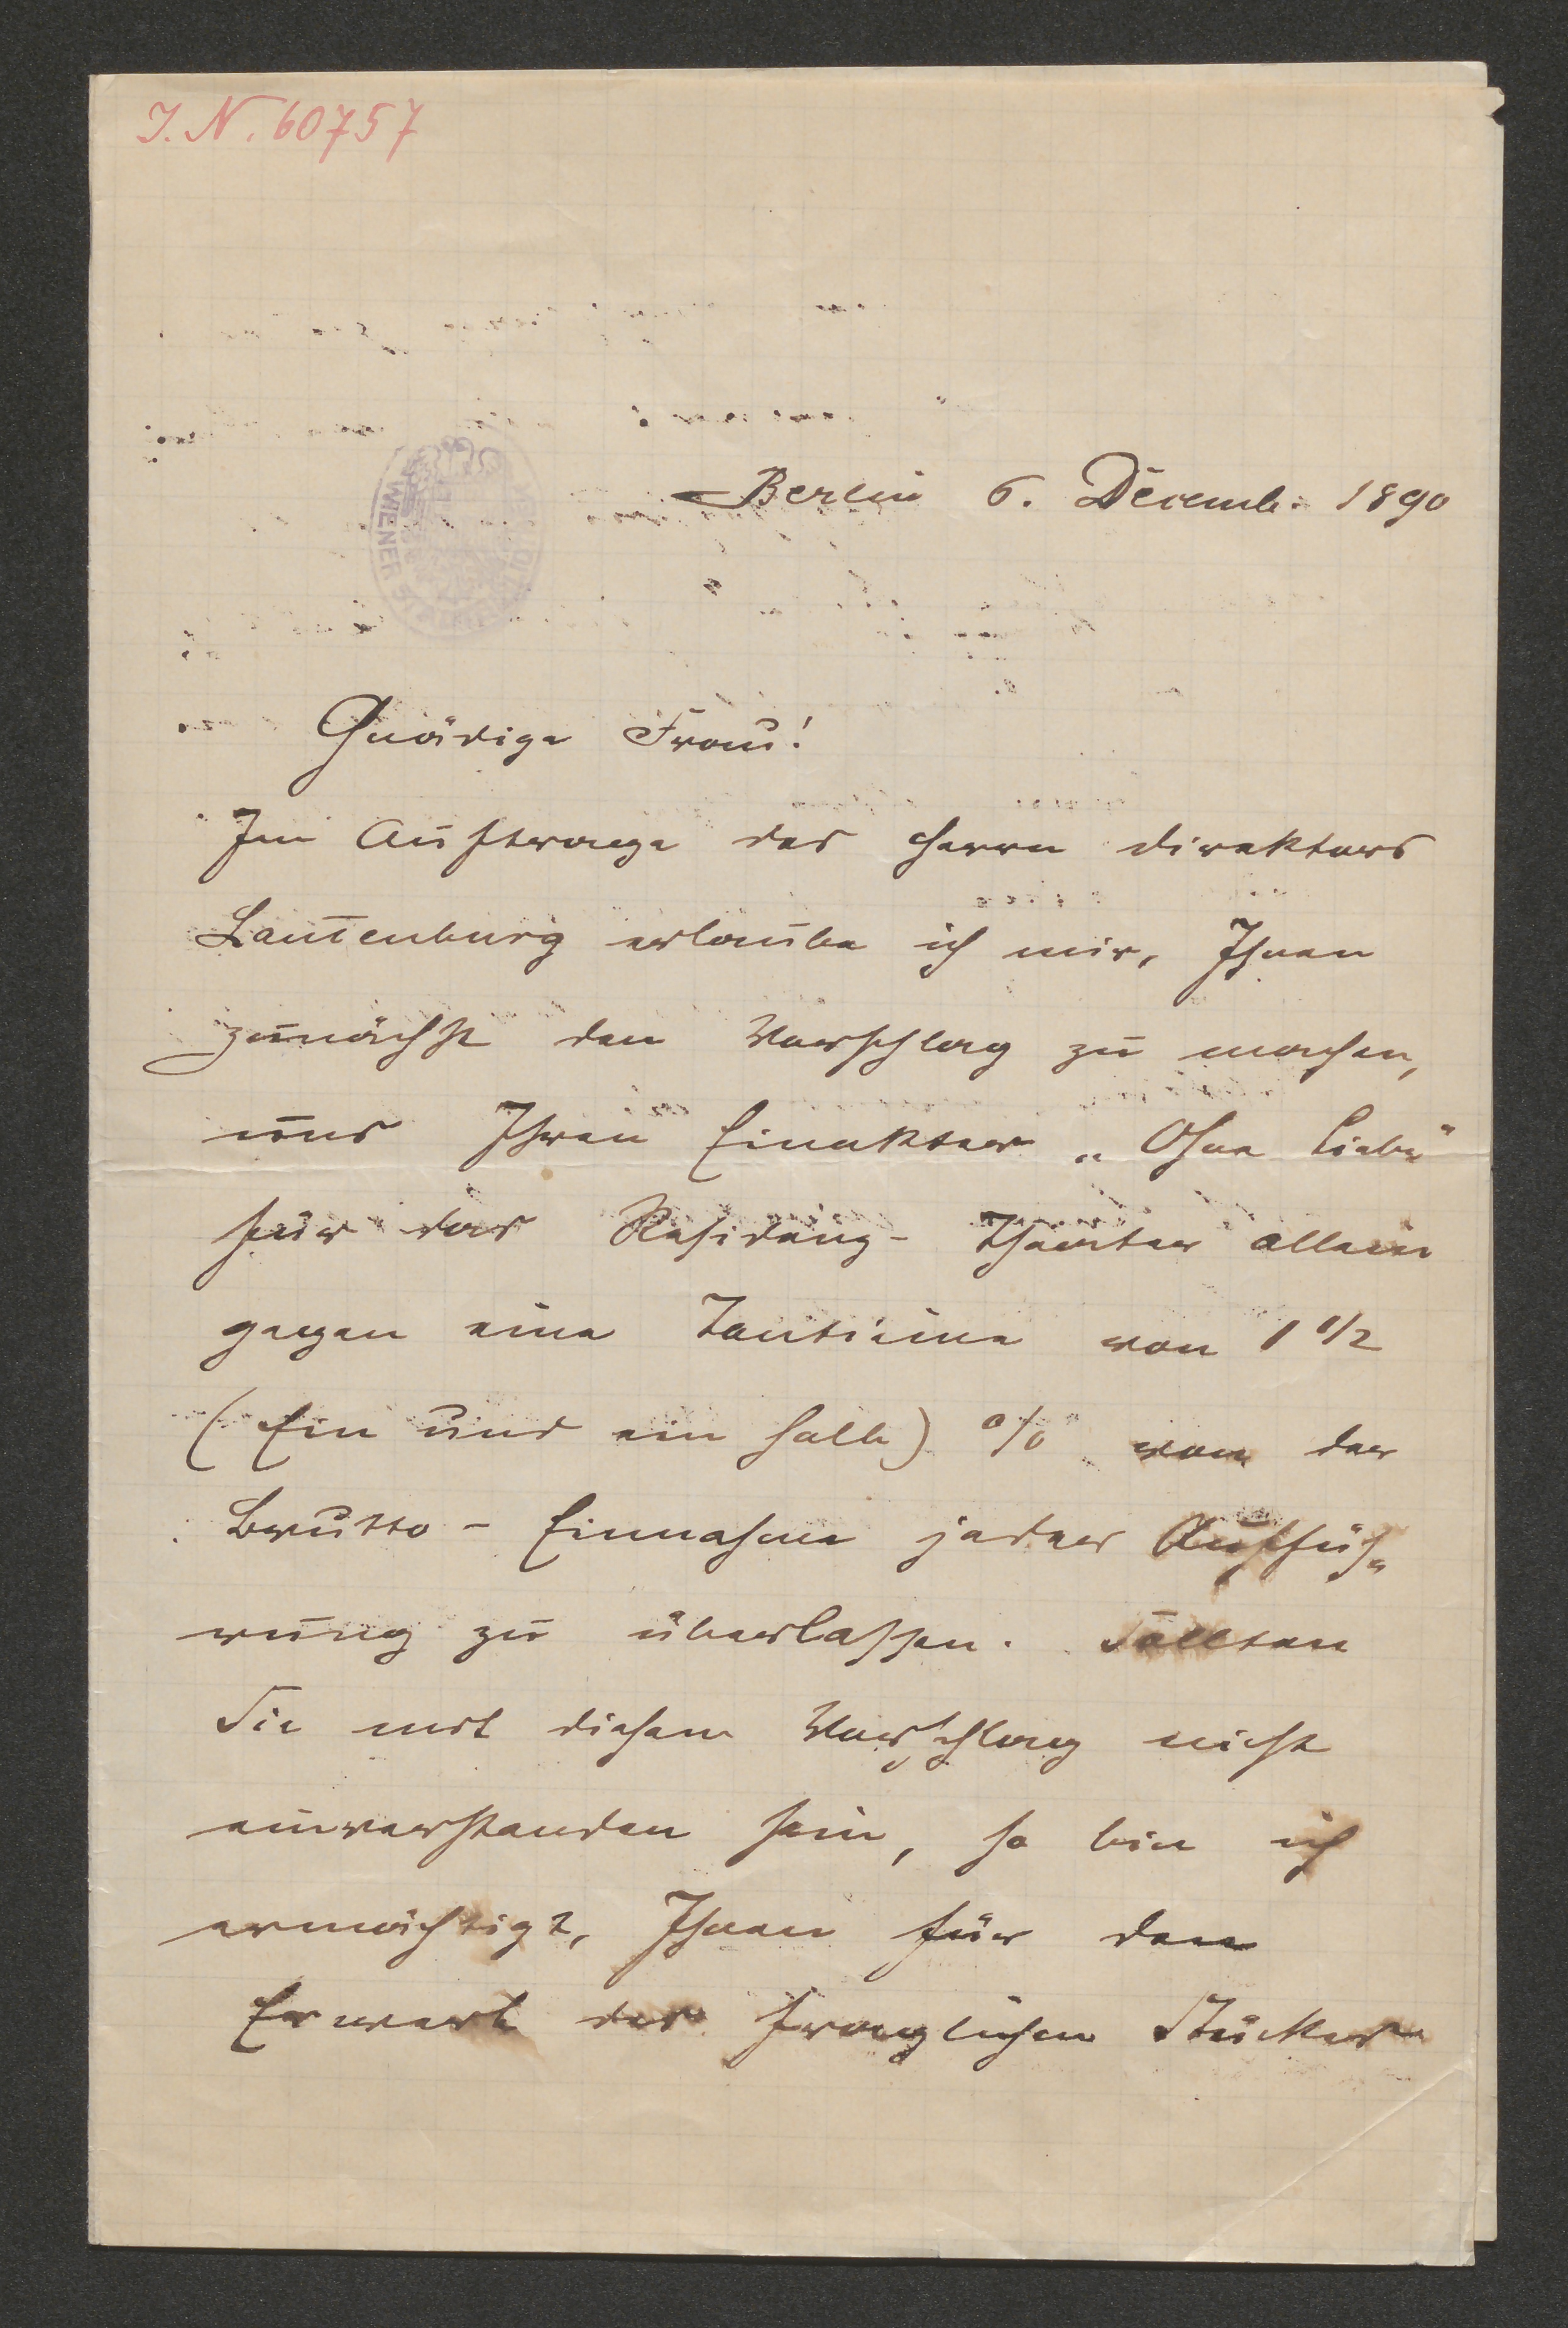 I. N. 60757
WIENER
Berlin 6. Decemb. 1890
Gnädige Frau!
Im Auftrage des Herrn Direktors
Lautenburg erlaube ich mir, Ihnen
zunächst den Vorschlag zu machen,
uns Ihren Einakter „Ohne Liebe“
für das Residenz-Theater allein
gegen eine Tantième von 1 1/2
(Ein und ein halb) % von der
Brutto-Einnahme jeder Auffüh-
rung zu überlassen. Sollten
Sie mit diesem Vorschlag nicht
einverstanden sein, so bin ich
ermächtigt, Ihnen für den
Erwerb des fraglichen Stückes